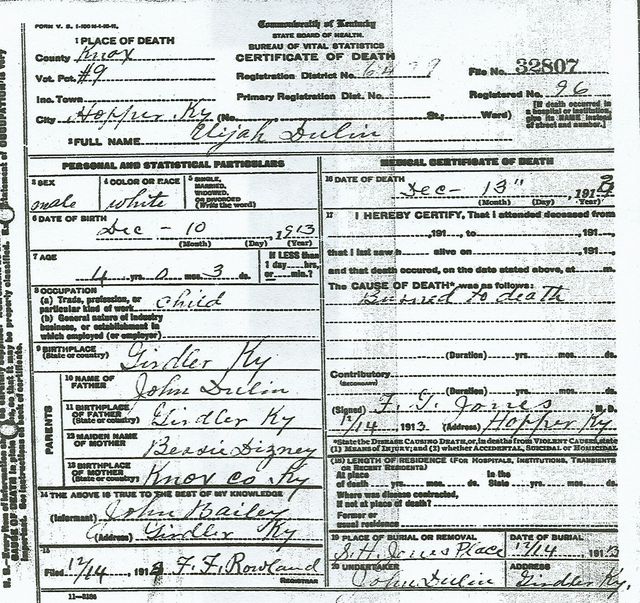 FORM V. S. 1-
Commonwealth of Kentucky
STATE BOARD OF HEALTH.
BUREAU OF VITAL STATISTICS
CERTIFICATE OF DEATH
1 PLACE OF DEATH
County Knox
Vot. Pct. #9
Inc. Town
City Hopper Ky (No. St.; Ward)
Registration District No.
File No. 32807
Primary Registration Dist. No.
Registered No. 96
[If death occurred in a hospital or institution, give its NAME instead of street and number.]
2 FULL NAME Elijah Dulin
PERSONAL AND STATISTICAL PARTICULARS
3 SEX male
4 COLOR OR RACE white
5 SINGLE, MARRIED, WIDOWED, OR DIVORCED (Write the word)
6 DATE OF BIRTH
Dec - 10 1913
(Month) (Day) (Year)
7 AGE
4 yrs. 0 mos. 3 ds.
If LESS than 1 day hrs. or min.?
8 OCCUPATION
(a) Trade, profession, or particular kind of work child
(b) General nature of industry business, or establishment in which employed (or employer)
9 BIRTHPLACE (State or country) Girdler Ky
PARENTS
10 NAME OF FATHER John Dulin
11 BIRTHPLACE OF FATHER (State or country) Girdler Ky
12 MAIDEN NAME OF MOTHER Bessie Dizney
13 BIRTHPLACE OF MOTHER (State or country) Knox co. Ky
14 THE ABOVE IS TRUE TO THE BEST OF MY KNOWLEDGE
(Informant) John Bailey
(Address) Girdler Ky
15
Filed 12/14, 191 F. F. Rowland
REGISTRAR
11-3184
MEDICAL CERTIFICATE OF DEATH
16 DATE OF DEATH
Dec - 13" 191
(Month) (Day) (Year)
17 I HEREBY CERTIFY, That I attended deceased from
, 191 , to , 191 ,
that I last saw h alive on , 191 ,
and that death occurred, on the date stated above, at m.
The CAUSE OF DEATH* was as follows:
Burned to death
(Duration) yrs. mos. ds.
Contributory
(SECONDARY)
(Duration) yrs. mos. ds.
(Signed) F. G. Jones M. D.
12/14, 1913 (Address) Hopper Ky.
*State the DISEASE CAUSING DEATH, or, in deaths from VIOLENT CAUSES, state (1) MEANS OF INJURY; and (2) whether ACCIDENTAL, SUICIDAL or HOMICIDAL
(18) LENGTH OF RESIDENCE (FOR HOSPITALS, INSTITUTIONS, TRANSIENTS OR RECENT RESIDENTS)
At place of death yrs. mos. ds. In the State yrs. mos. ds.
Where was disease contracted, if not at place of death?
Former or usual residence
19 PLACE OF BURIAL OR REMOVAL
S. H. Jones Place
DATE OF BURIAL
12/14 1913
20 UNDERTAKER
John Dulin
ADDRESS
Girdler Ky.